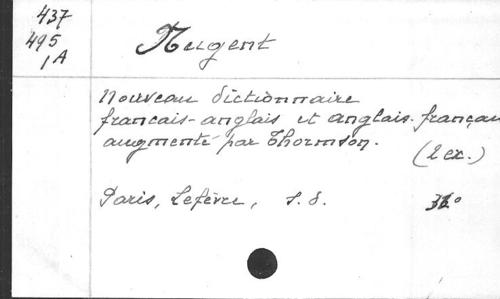 437
495
1A
Nugent
Nouveau dictionnaire
francais-anglais et anglais-françau
augmenté par Thormson.
(2 ex.)
Paris, Lefèvre, s.d.